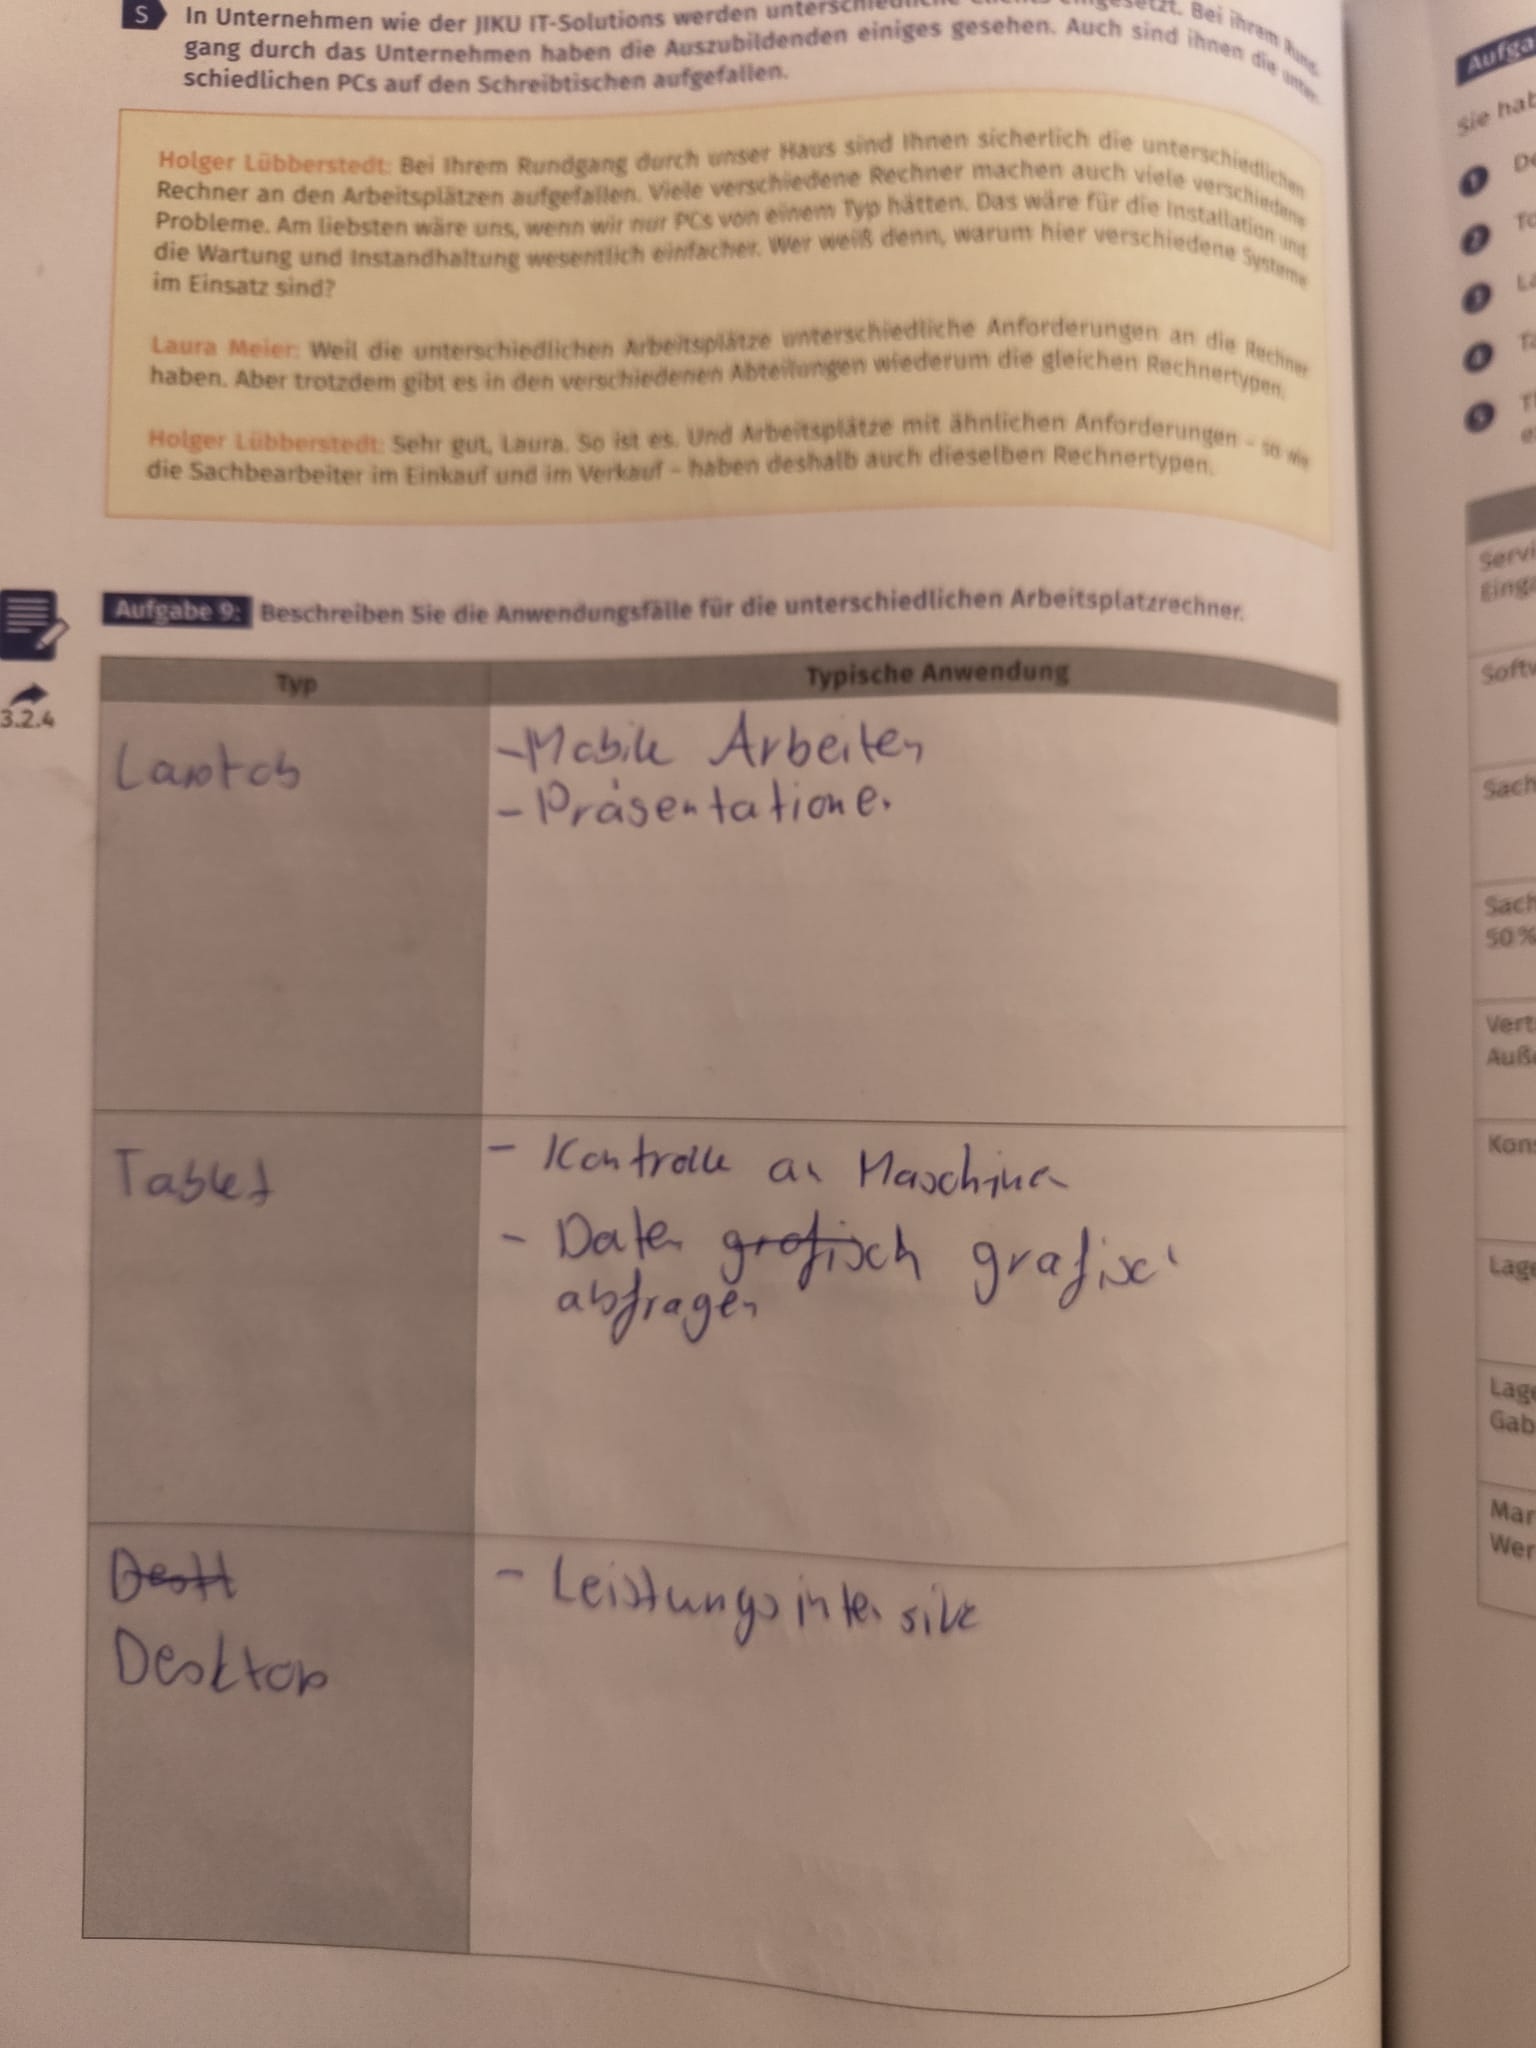 S In Unternehmen wie der JIKU IT-Solutions werden unterschiedliche eingesetzt. Bei ihrem Rund-
gang durch das Unternehmen haben die Auszubildenden einiges gesehen. Auch sind ihnen die unter-
schiedlichen PCs auf den Schreibtischen aufgefallen.
Holger Lübberstedt: Bei Ihrem Rundgang durch unser Haus sind Ihnen sicherlich die unterschiedlichen
Rechner an den Arbeitsplätzen aufgefallen. Viele verschiedene Rechner machen auch viele verschiedene
Probleme. Am liebsten wäre uns, wenn wir nur PCs von einem Typ hätten. Das wäre für die Installation und
die Wartung und Instandhaltung wesentlich einfacher. Wer weiß denn, warum hier verschiedene Systeme
im Einsatz sind?
Laura Meier: Weil die unterschiedlichen Arbeitsplätze unterschiedliche Anforderungen an die Rechner
haben. Aber trotzdem gibt es in den verschiedenen Abteilungen wiederum die gleichen Rechnertypen.
Holger Lübberstedt: Sehr gut, Laura. So ist es. Und Arbeitsplätze mit ähnlichen Anforderungen – so wie
die Sachbearbeiter im Einkauf und im Verkauf – haben deshalb auch dieselben Rechnertypen.
Aufgabe 9: Beschreiben Sie die Anwendungsfälle für die unterschiedlichen Arbeitsplatzrechner.
3.2.4
Typ Typische Anwendung
Laptop
- Mobile Arbeiten
- Präsentatione.
Tablet
- Kontrolle an Maschinen
- Daten grafisch grafisc
abfragen
Desktop
- Leistungsintensive
Aufga
Sie hab
1 De
2 To
3 La
4 Ta
5
Servi
Einga
Softw
Sach
Sach
50 %
Vert
Auße
Kons
Lage
Lage
Gab
Mar
Wer